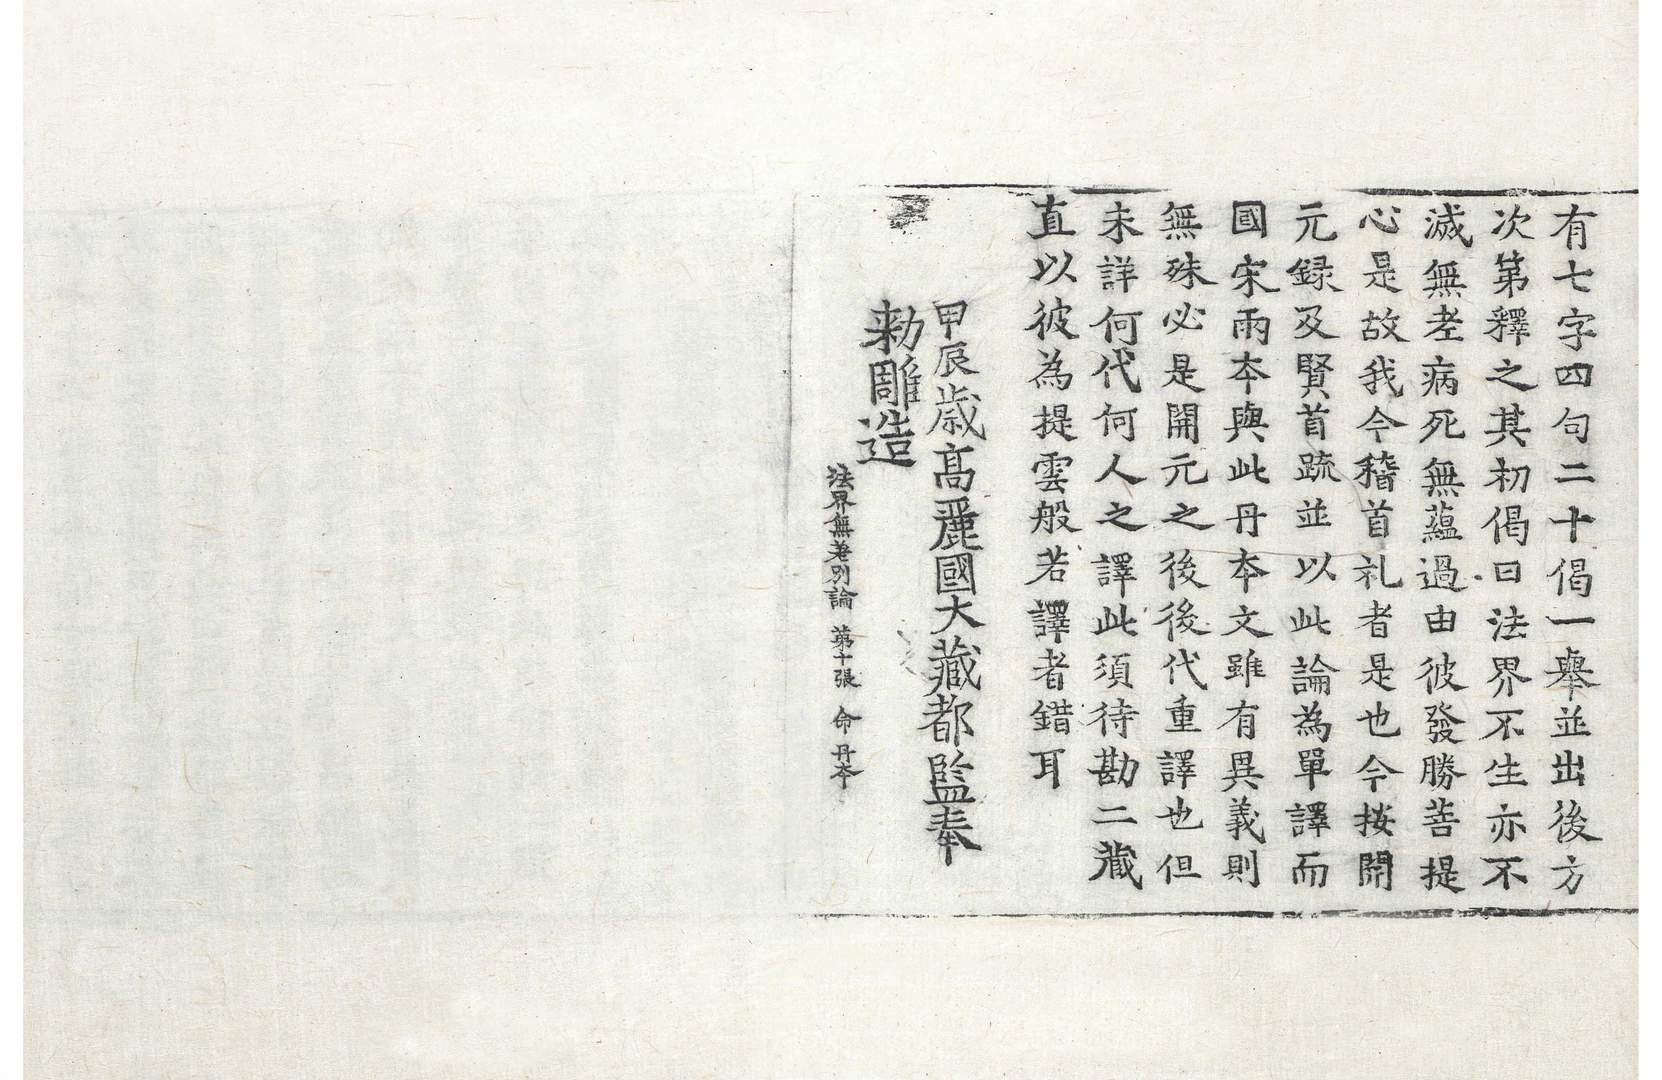 有七字四句二十偈一舉並出後方
次第釋之其初偈曰法界不生亦不
滅無老病死無蘊過由彼發勝菩提
心是故我今稽首礼者是也今按開
元録及賢首䟽並以此論為單譯而
國宋兩夲與此丹夲文雖有異義則
無殊必是開元之後後代重譯也但
未詳何代何人之譯此須待勘二藏
直以彼為提雲般若譯者錯耳
甲辰歳髙麗國大藏都監奉
勑雕造
法界無差別論 第十張 命 丹夲